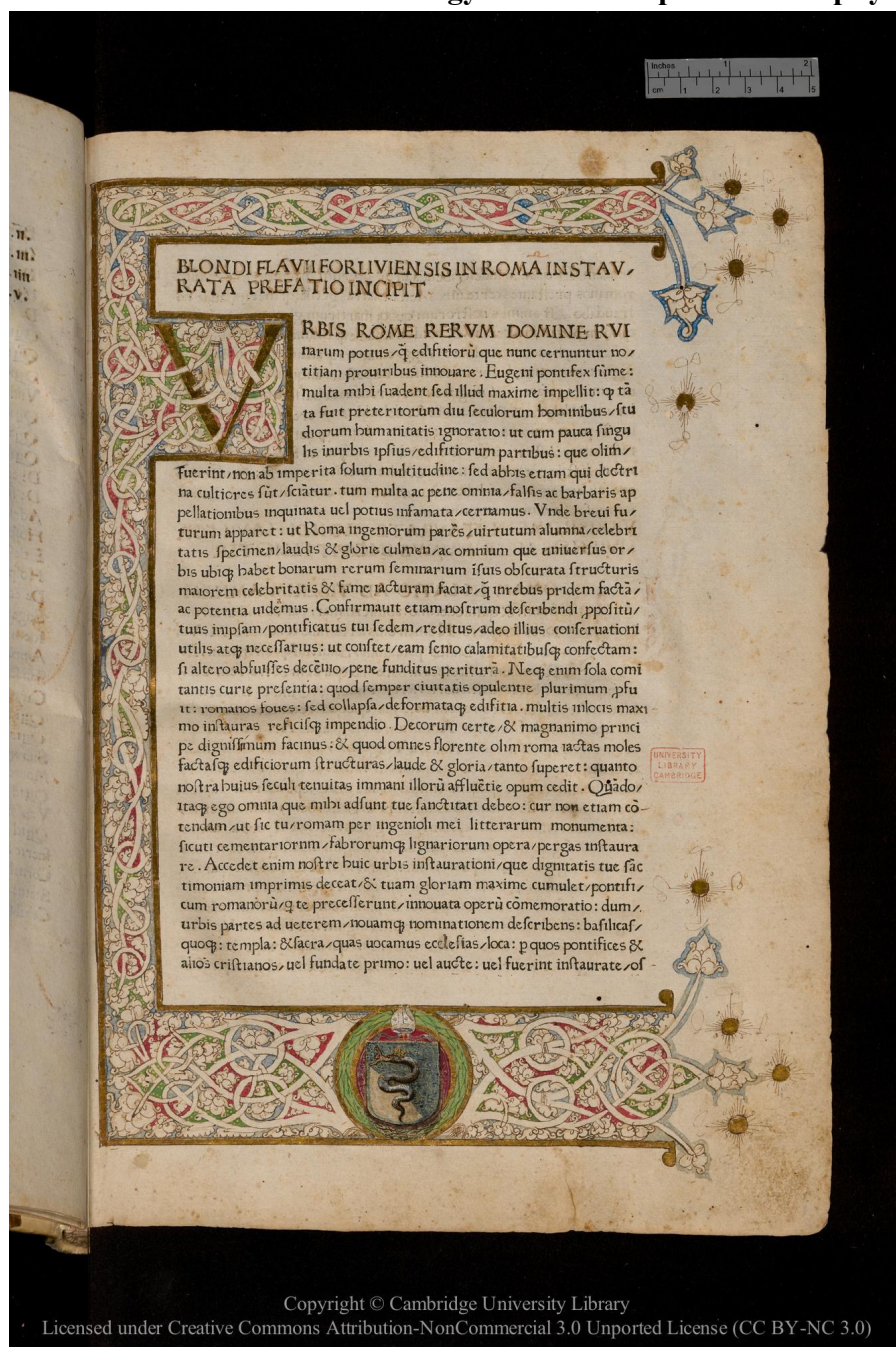 .n.
.m.
.iin
.v.
Inches 1 2
cm 1 2 3 4 5
BLONDI FLAVII FORLIVIENSIS IN ROMA INSTAV/
RATA PREFATIO INCIPIT
V
RBIS ROME RERVM DOMINE RVI
narum potius/q̃ edifitiorũ que nunc cernuntur no/
titiam prouiribus innouare. Eugeni pontifex sũme:
multa mihi suadent sed illud maxime impellit: ꝙ tã
ta fuit preteritorum diu seculorum hominibus/stu
diorum humanitatis ignoratio: ut cum pauca singu
lis inurbis ipsius/edifitiorum partibus: que olim/
fuerint/non ab imperita solum multitudine: sed abhis etiam qui doctri
na cultiores sũt/sciãtur. tum multa ac pene omnia/falsis ac barbaris ap
pellationibus inquinata uel potius infamata/cernamus. Vnde brevi fu/
turum apparet: ut Roma ingeniorum parẽs/uirtutum alumna/celebri
tatis specimen/laudis & glorie culmen/ac omnium que uniuersus or/
bis ubiqꝫ habet bonarum rerum seminarium ĩsuis obscurata structuris
maiorem celebritatis & fame iacturam faciat/q̃ inrebus pridem factã/
ac potentia uidemus. Confirmauit etiam nostrum describendi ꝓpositũ/
tuus inipsam/pontificatus tui sedem/reditus/adeo illius conseruationi
utilis atqꝫ necessarius: ut constet/eam senio calamitatibusqꝫ confectam:
si altero abfuisses decẽnio/pene funditus peritura̅. Neqꝫ enim sola comi
tantis curie presentia: quod semper ciuitatis opulentie plurimum ꝓfu
it: romanos foues: sed collapsa/deformataqꝫ edifitia. multis inlocis maxi
mo instauras reficisqꝫ impendio. Decorum certe/& magnanimo princi
pe dignissimum facinus: & quod omnes florente olim roma iactas moles
factasqꝫ edificiorum structuras/laude & gloria/tanto superet: quanto
nostra huius seculi tenuitas immani illorũ affluẽtie opum cedit. Quãdo/
itaqꝫ ego omnia que mihi adsunt tue sanctitati debeo: cur non etiam cõ
tendam/ut sic tu/romam per ingenioli mei litterarum monumenta:
sicuti cementariornm/fabrorumqꝫ lignariorum opera/pergas instaura
re. Accedet enim nostre huic urbis instaurationi/que dignitatis tue sãc
timoniam imprimis deceat/& tuam gloriam maxime cumulet/pontifi/
cum romanorũ/q te precesserunt/innouata operũ cõmemoratio: dum/
urbis partes ad ueterem/nouamqꝫ nominationem describens: basilicas/
quoqꝫ: templa: &sacra/quas uocamus ecclesias/loca: ꝑ quos pontifices &
alios cristianos/uel fundate primo: uel aucte: uel fuerint instaurate/os
UNIVERSITY
LIBRARY
CAMBRIDGE
Copyright © Cambridge University Library
Licensed under Creative Commons Attribution-NonCommercial 3.0 Unported License (CC BY-NC 3.0)